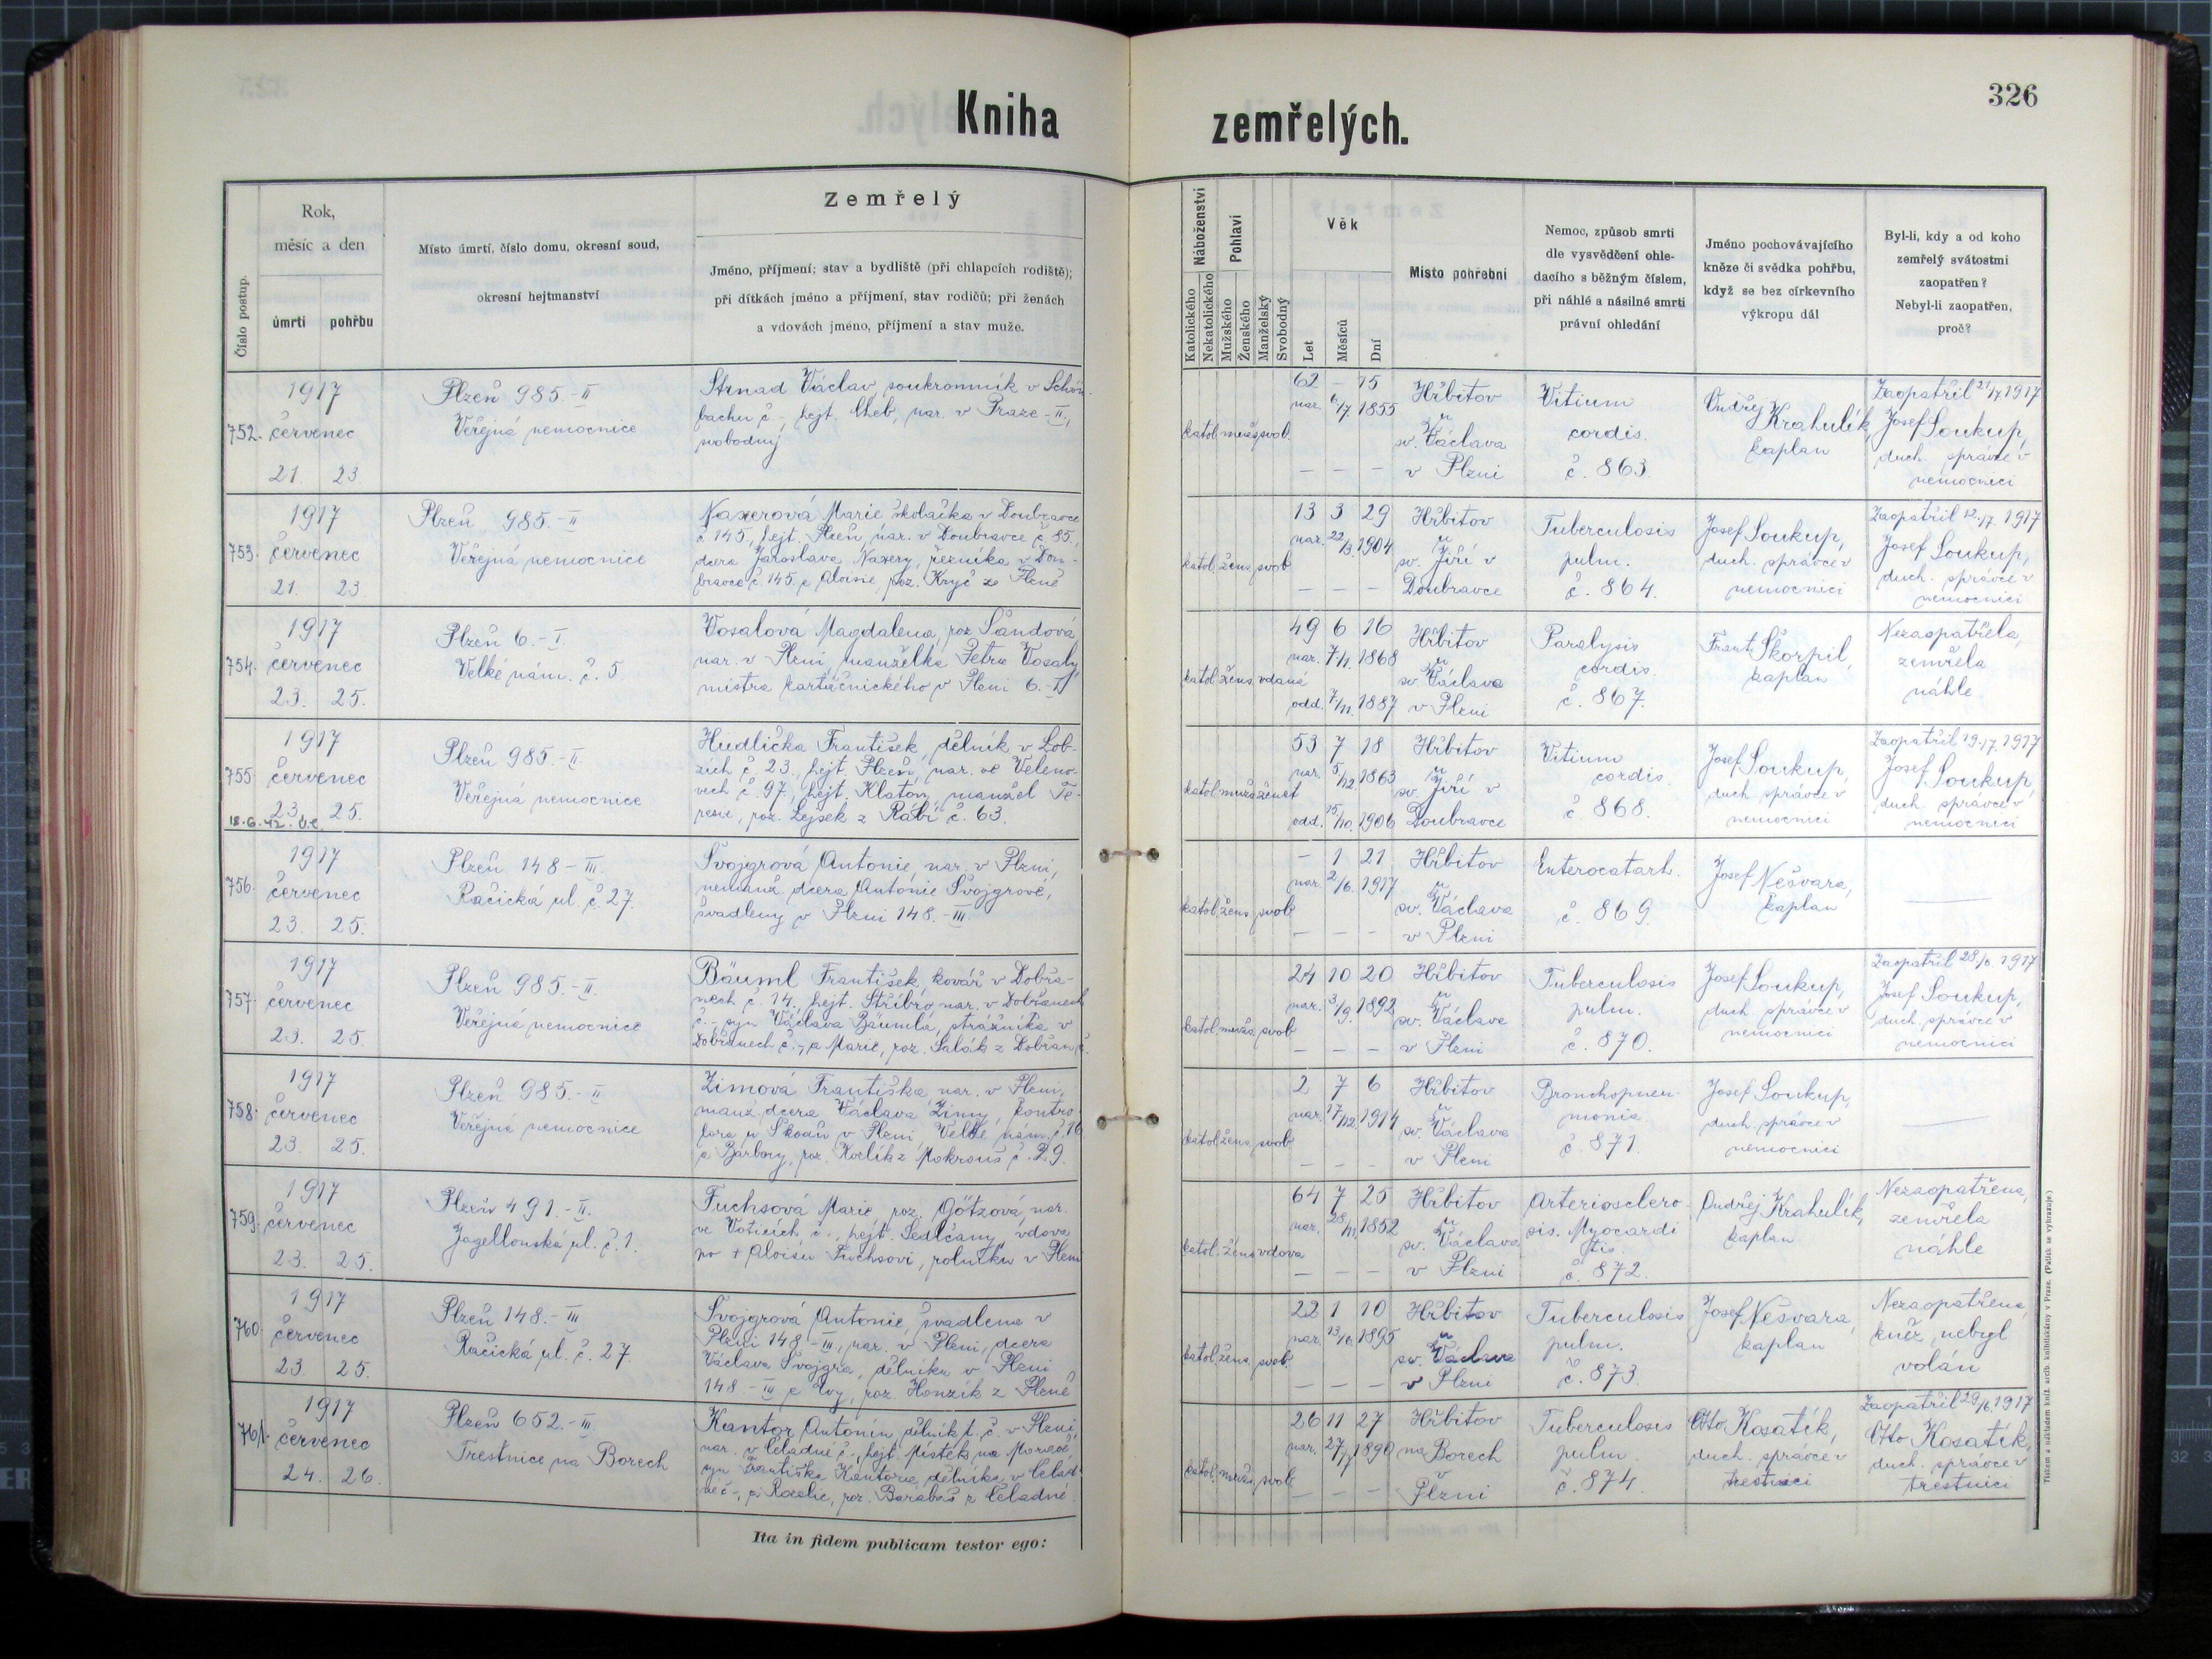 Kniha zemřelých.
326
Číslo postup.
Rok,
měsíc a den
úmrtí pohřbu
Místo úmrtí, číslo domu, okresní soud,
okresní hejtmanství
Zemřelý
Jméno, příjmení; stav a bydliště (při chlapcích rodiště);
při dítkách jméno a příjmení, stav rodičů; při ženách
a vdovách jméno, příjmení a stav muže.
Náboženství
Katolického
Nekatolického
Pohlaví
Mužského
Ženského
Manželský
Svobodný
Věk
Let
Měsíců
Dní
Místo pohřební
Nemoc, způsob smrti
dle vysvědčení ohle-
dacího s běžným číslem,
při náhlé a násilné smrti
právní ohledání
Jméno pochovávajícího
kněze či svědka pohřbu,
když se bez církevního
výkropu dál
Byl-li, kdy a od koho
zemřelý svátostmi
zaopatřen?
Nebyl-li zaopatřen,
proč?
752.
1917
červenec
21. 23
Plzeň 985.-II
Veřejná nemocnice
Strnad Václav, soukromník v Schön-
bachu č -, hejt. Cheb, nar. v Praze-II.,
svobodný
katol. muž. svob.
62 - 15
nar. 6/7. 1855
- - -
Hřbitov
u
sv. Václava
v Plzni
Vitium
cordis.
č. 863.
Ondřej
Krahulík,
kaplan
Zaopatřil 21/7. 1917
Josef Soukup,
duch. správce v
nemocnici
753.
1917
červenec
21. 23
Plzeň 985.-II
Veřejná nemocnice
Naxerová Marie školačka v Doubravce
č. 145., hejt. Plzeň, nar. v Doubravce č. 85.,
dcera Jaroslava Naxery, řezníka v Dou-
bravce č. 145. a Aloisie, roz. Kryč ze Plzně
katol. žens. svob
13 3 29
nar. 22/3. 1904
- - -
Hřbitov
u
sv. Jiří v
Doubravce
Tuberculosis
pulm.
č. 864.
Josef Soukup,
duch. správce v
nemocnici
Zaopatřil 12./7. 1917
Josef Soukup,
duch. správce v
nemocnici
754.
1917
červenec
23. 25.
Plzeň 6.-I.
Velké nám. č. 5
Vosalová Magdalena, roz. Šandová,
nar. v Plzni, manželka Petra Vosaly,
mistra kartáčnického v Plzni 6.-I
katol. žens. vdaná
49 6 16
nar. 7/1. 1868
odd. 7/11. 1887
Hřbitov
u
sv. Václava
v Plzni
Paralysis
cordis.
č. 867.
Frant. Škorpil,
kaplan
Nezaopatřela,
zemřela
náhle
755.
1917
červenec
23. 25.
18.6.42.
Plzeň 985.-II.
Veřejná nemocnice
Hudlička František, dělník v Lob-
zích č. 23., hejt. Plzeň, nar. ve Veleno-
vech č. 97., hejt. Klatovy, manžel Te-
resie, roz. Lejsek z Rábí č. 63.
katol. muž. ženat
53 7 18
nar. 5/12. 1863
odd. 15./10. 1906
Hřbitov
u
sv. Jiří v
Doubravce
Vitium
cordis.
č. 868.
Josef Soukup,
duch. správce v
nemocnici
Zaopatřil 19./7. 1917
Josef Soukup,
duch. správce v
nemocnici
756.
1917
červenec
23. 25.
Plzeň 148-III.
Račická ul. č. 27.
Švojgrová Antonie, nar. v Plzni,
nemanž. dcera Antonie Švojgrové,
švadleny v Plzni 148.-III.
katol. žens. svob
- 1 21
nar. 2/6. 1917
- - -
Hřbitov
u
sv. Václava
v Plzni
Enterocatarh.
č. 869.
Josef Nešvara,
kaplan
757.
1917
červenec
23. 25.
Plzeň 985.-II.
Veřejná nemocnice
Bäuml František, kovář v Dobřa-
nech č. 14., hejt. Stříbro, nar. v Dobřanech
č. -, syn Václava Bäumla, strážníka v
Dobřanech č. -, a Marie, roz. Salák z Dobřan č.
katol. muž. svob
24 10 20
nar. 3/9. 1892
- - -
Hřbitov
u
sv. Václava
v Plzni
Tuberculosis
pulm.
č. 870.
Josef Soukup,
duch. správce v
nemocnici
Zaopatřil 28/6 1917
Josef Soukup,
duch. správce v
nemocnici
758.
1917
červenec
23. 25.
Plzeň 985.-II
Veřejná nemocnice
Zimová Františka, nar. v Plzni,
manž. dcera Václava Zimy, kontro-
lora u Škodů v Plzni, Velké nám. č. 16
a Barbory, roz. Korlík z Mokrouš č. 29.
katol. žens. svob
2 7 6
nar. 17/12. 1914
- - -
Hřbitov
u
sv. Václava
v Plzni
Bronchopneu-
monia
č. 871.
Josef Soukup,
duch. správce v
nemocnici
759.
1917
červenec
23. 25.
Plzeň 491.-II.
Jagellonská ul. č. 1.
Fuchsová Marie, roz. Götzová, nar.
ve Voticích č., hejt. Sedlčany, vdova
po + Aloisu Fuchsovi, rolníku v Plzni
katol. žens. vdova
64 7 25
nar. 28/11. 1852
- - -
Hřbitov
u
sv. Václava
v Plzni
Arteriosclero-
sis. Myocardi
tis.
č. 872.
Ondřej Krahulík,
kaplan
Nezaopatřena,
zemřela
náhle
760.
1917
červenec
23 25.
Plzeň 148.-III
Račická ul. č. 27.
Švojgrová Antonie, švadlena v
Plzni 148-III., nar. v Plzni, dcera
Václava Švojgra, dělníka v Plzni
148.-III a Evy, roz. Honzík z Plzně
katol. žens. svob
22 1 10
nar. 13/6. 1895
- - -
Hřbitov
u
sv. Václava
v Plzni
Tuberculosis
pulm.
č. 873.
Josef Nešvara,
kaplan
Nezaopatřena,
kněz nebyl
volán
761.
1917
červenec
24. 26.
Plzeň 652.-III
Trestnice na Borech
Kantor Antonín, dělník t. č. v Plzni,
nar. v Čeladné č., hejt. Místek na Moravě,
syn Františka Kantora, dělníka v Čelad-
né č -, a Rosalie, roz. Barabáš z Čeladné
katol. muž. svob
26 11 27
nar. 27/7 1890
- - -
Hřbitov
na Borech
v
Plzni
Tuberculosis
pulm.
č. 874.
Otto Kosatík,
duch. správce v
trestnici
Zaopatřil 29/6. 1917
Otto Kosatík,
duch. správce v
trestnici
Ita in fidem publicam testor ego:
Tiskem a nákladem kníž. arcib. knihtiskárny v Praze. (Patisk se vyhrazuje.)